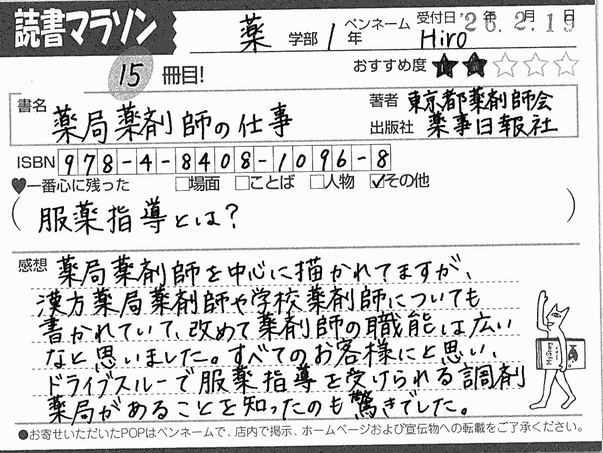 読書マラソン
薬 学部 1年 ペンネーム Hiro 受付日 '26年2.月19日
15 冊目!
おすすめ度 ★★☆☆☆
書名 薬局薬剤師の仕事
著者 東京都薬剤師会
出版社 薬事日報社
ISBN 978-4-8408-1096-8
♥一番心に残った □場面 □ことば □人物 ☑その他
(服薬指導とは?)
感想 薬局薬剤師を中心に描かれてますが、
漢方薬局薬剤師や学校薬剤師についても
書かれていて、改めて薬剤師の職能は広い
なと思いました。すべてのお客様にと思い、
ドライブスルーで服薬指導を受けられる調剤
薬局があることを知ったのも驚きでした。
●お寄せいただいたPOPはペンネームで、店内で掲示、ホームページおよび宣伝物への転載をご了承ください。